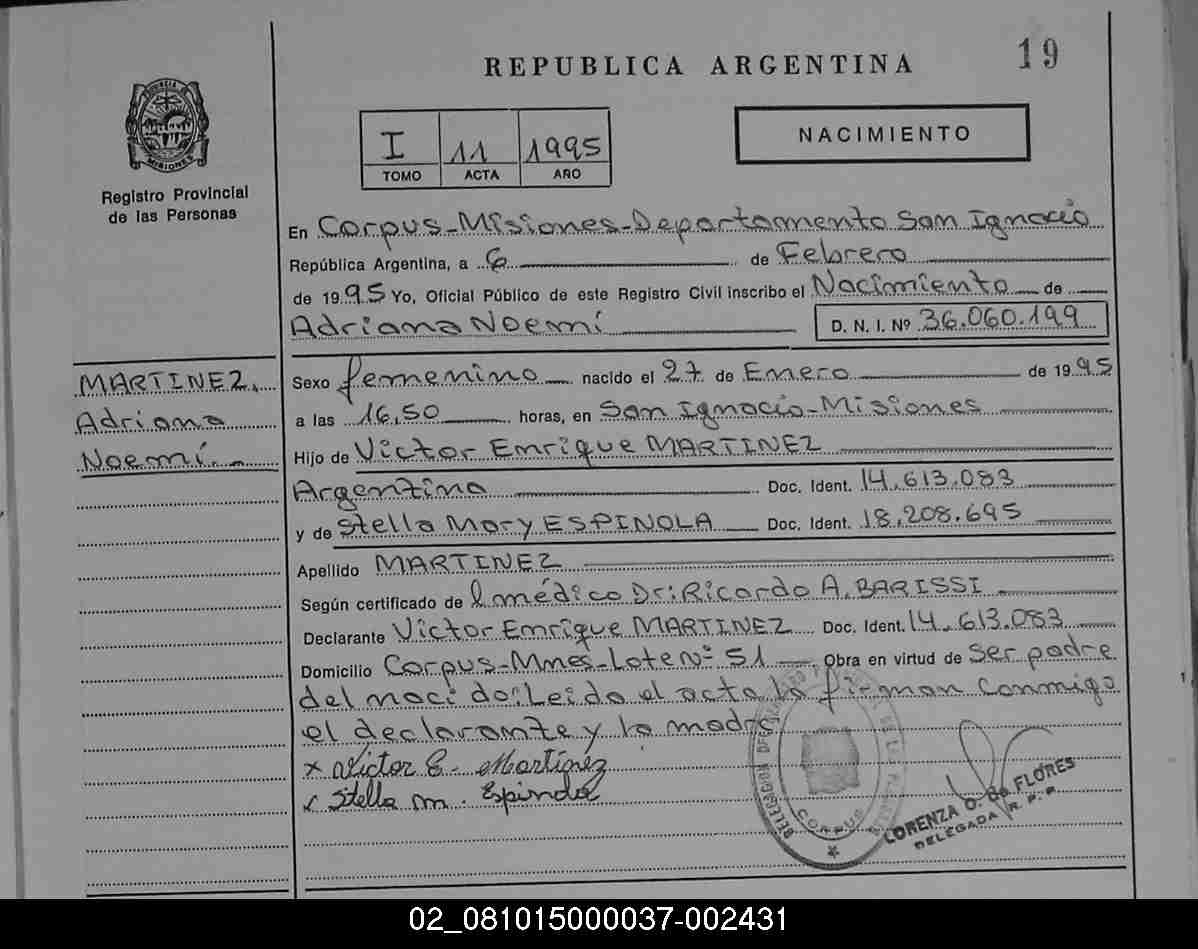 REPUBLICA ARGENTINA
19
PROVINCIA DE
MISIONES
Registro Provincial
de las Personas
I 11 1995
TOMO ACTA AÑO
NACIMIENTO
En Corpus-Misiones-Departamento San Ignacio
República Argentina, a 6 de Febrero
de 1995 Yo, Oficial Público de este Registro Civil inscribo el Nacimiento de
Adriana Noemí D. N. I. Nº 36.060.199
MARTINEZ,
Adriana
Noemí.
Sexo femenino nacido el 27 de Enero de 1995
a las 16,50 horas, en San Ignacio-Misiones
Hijo de Victor Enrique MARTINEZ
Argentino Doc. Ident. 14.613.083
y de Stella Mary ESPINOLA Doc. Ident. 18.208.695
Apellido MARTINEZ
Según certificado de l médico Dr: Ricardo A. BARISSI
Declarante Victor Enrique MARTINEZ Doc. Ident. 14.613.083
Domicilio Corpus-Mnes-Lote Nº 51 Obra en virtud de Ser padre
del nacido: Leida el acta la firman conmigo
el declarante y la madre
x Victor E. Martinez
x Stella M. Espinola
CORPUS
LORENZA O. de FLORES
DELEGADA R. P. P.
02_081015000037-002431